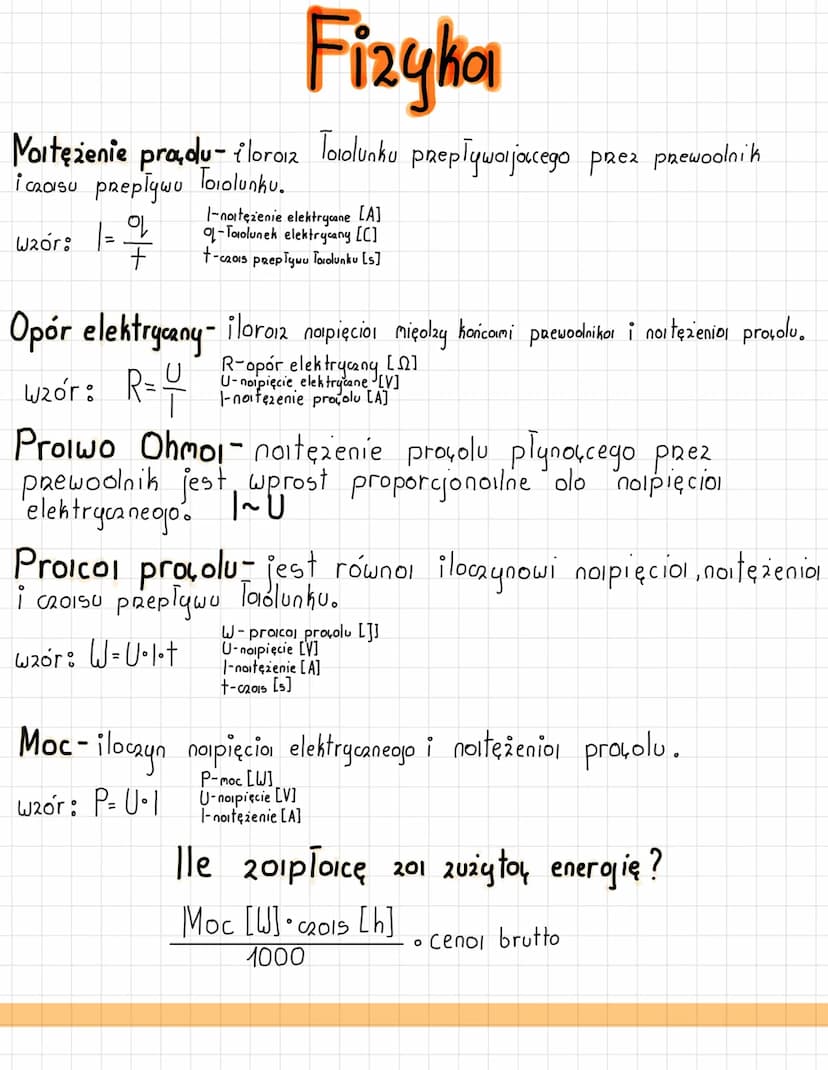 Fizyka
Natężenie prądu - iloraz ładunku przepływającego przez przewodnik
i czasu przepływu ładunku.
wzór: I = q/t
I - natężenie elektryczne [A]
q - ładunek elektryczny [C]
t - czas przepływu ładunku [s]
Opór elektryczny - iloraz napięcia między końcami przewodnika i natężenia prądu.
wzór: R = U/I
R - opór elektryczny [Ω]
U - napięcie elektryczne [V]
I - natężenie prądu [A]
Prawo Ohma - natężenie prądu płynącego przez
przewodnik jest wprost proporcjonalne do napięcia
elektrycznego. I ~ U
Praca prądu - jest równa iloczynowi napięcia, natężenia
i czasu przepływu ładunku.
wzór: W = U · I · t
W - praca prądu [J]
U - napięcie [V]
I - natężenie [A]
t - czas [s]
Moc - iloczyn napięcia elektrycznego i natężenia prądu.
wzór: P = U · I
P - moc [W]
U - napięcie [V]
I - natężenie [A]
Ile zapłacę za zużytą energię?
Moc [W] · czas [h]
1000
· cena brutto